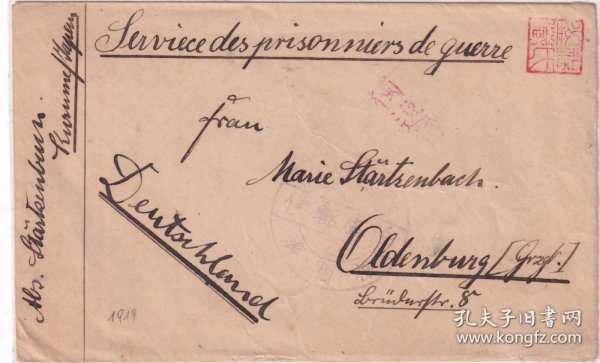 Serviece des prisonniers de guerre
Frau
Marie Stärtzenbach.
Oldenburg [Grzgt.]
Brüderstr. 8
Deutschland
Abs. Stärtzenbach.
Kurume/Japan
1919
孔夫子旧书网
kongfz.com